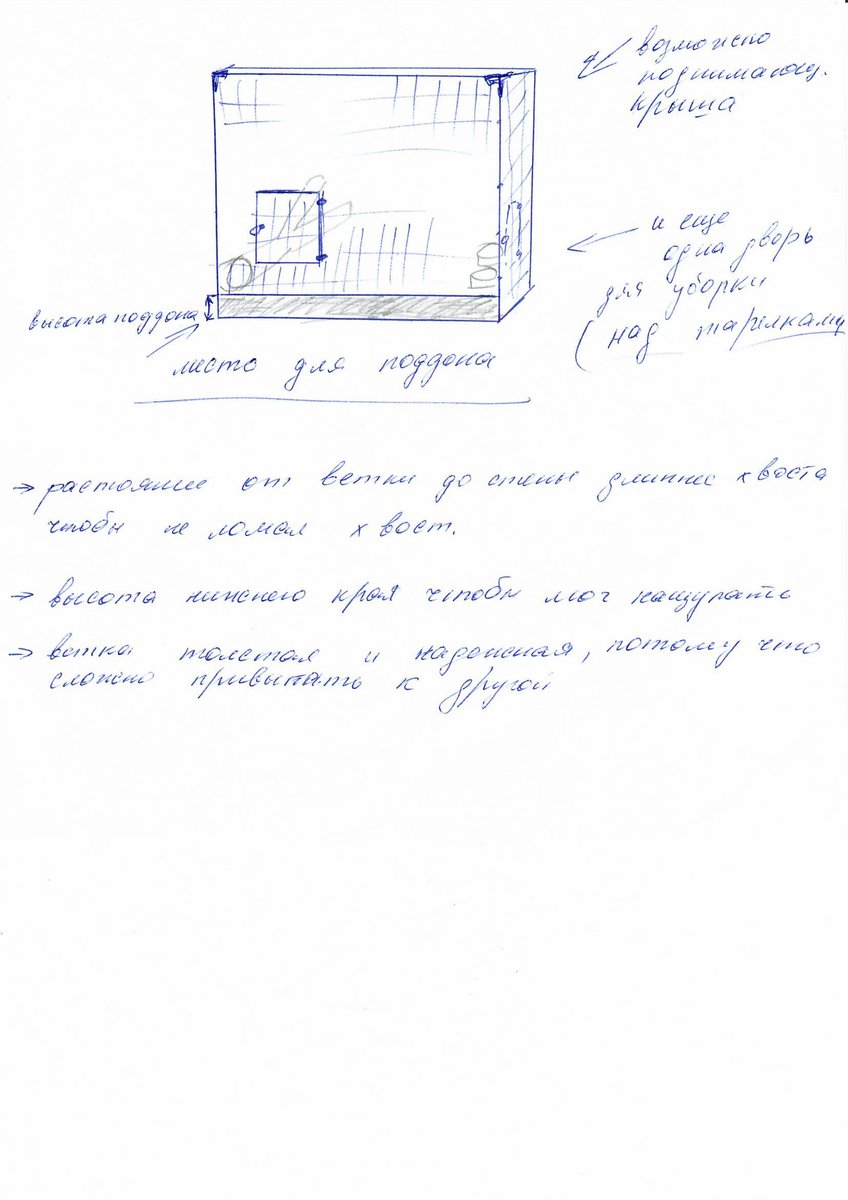 возможно
поднимающ.
крыша
и еще
одна дверь
для уборки
(над тарелками
высота поддона
место для поддона
→ растояние от ветки до стены длинне хвоста
чтобы не ломал хвост.
→ высота нижнего края чтобы мог нащупать
→ ветка толстая и надежная, потому что
сложно привыкать к другой